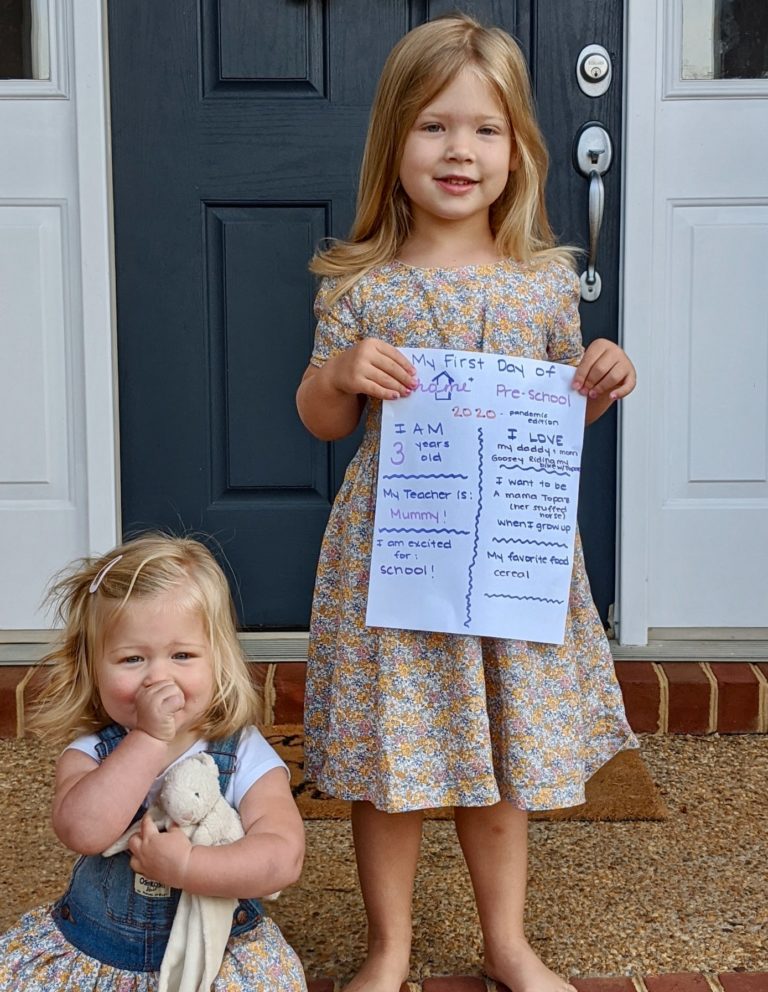 My First Day of
home Pre-school
2020 - pandemic
edition
I AM
3 years
old
My Teacher is:
Mummy!
I am excited
for:
school!
I LOVE
my daddy + mom
Goosey Riding my
bike w/ Topaz
I want to be
A mama Topaz
(her stuffed
horse)
when I grow up
My favorite food
cereal
OshKosh